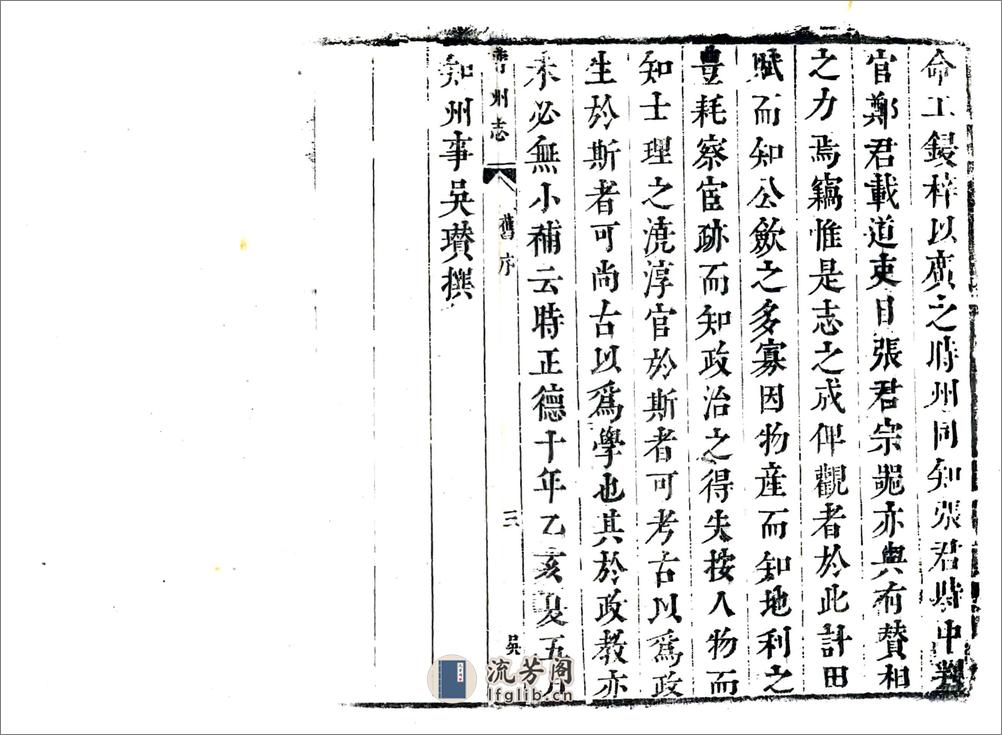 命工鋟梓以廣之時州同知張君時中判
官鄭君載道吏目張君宗亦與有賛相
之力焉竊惟是志之成俾觀者於此計田
賦而知公歛之多寡因物產而知地利之
豊耗察宦跡而知政治之得失按人物而
知士理之澆淳官於斯者可考古以爲政
生於斯者可尚古以爲學也其於政教亦
未必無小補云時正德十年乙亥夏五月
州志 舊序 三 吳
知州事吳瓉撰
流芳阁
lfglib.cn